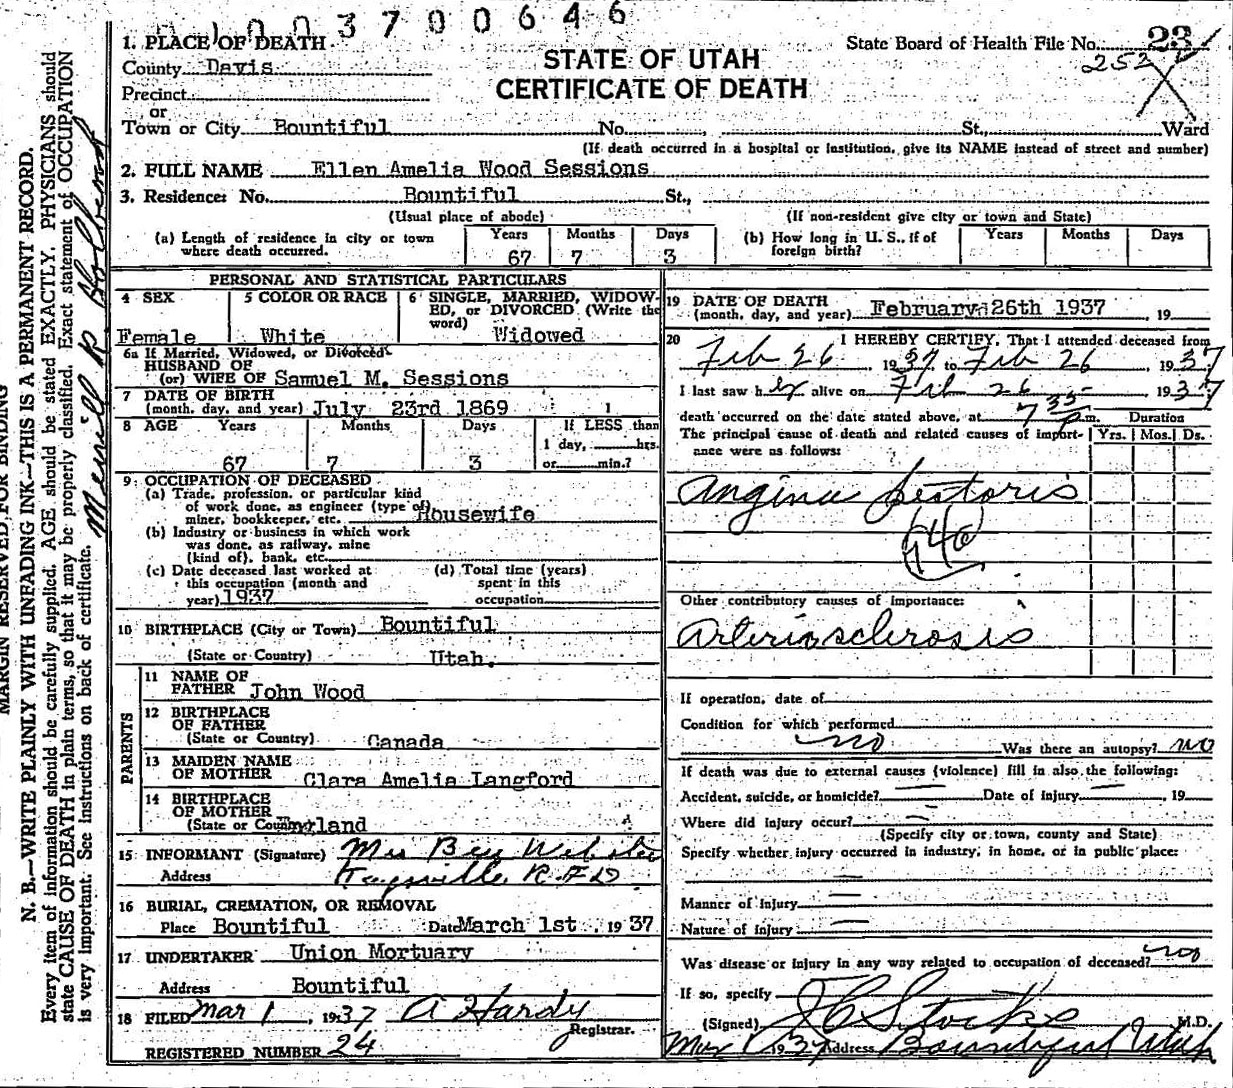 1003700646
1. PLACE OF DEATH
County Davis
Precinct
or
Town or City Bountiful No. , St., Ward
STATE OF UTAH
CERTIFICATE OF DEATH
State Board of Health File No. 23
252
(If death occurred in a hospital or institution, give its NAME instead of street and number)
2. FULL NAME Ellen Amelia Wood Sessions
3. Residence: No. Bountiful St.,
(Usual place of abode) (If non-resident give city or town and State)
(a) Length of residence in city or town where death occurred. Years 67 Months 7 Days 3
(b) How long in U. S., if of foreign birth? Years Months Days
PERSONAL AND STATISTICAL PARTICULARS
4 SEX Female
5 COLOR OR RACE White
6 SINGLE, MARRIED, WIDOWED, or DIVORCED (Write the word) Widowed
6a If Married, Widowed, or Divorced
HUSBAND OF
(or) WIFE OF Samuel M. Sessions
7 DATE OF BIRTH
(month, day, and year) July 23rd 1869
8 AGE Years 67 Months 7 Days 3
If LESS than
1 day, hrs.
or min.?
9 OCCUPATION OF DECEASED
(a) Trade, profession, or particular kind
of work done, as engineer (type of)
miner, bookkeeper, etc. Housewife
(b) Industry or business in which work
was done, as railway, mine
(kind of), bank, etc.
(c) Date deceased last worked at
this occupation (month and
year) 1937
(d) Total time (years)
spent in this
occupation
10 BIRTHPLACE (City or Town) Bountiful
(State or Country) Utah.
PARENTS
11 NAME OF
FATHER John Wood
12 BIRTHPLACE
OF FATHER
(State or Country) Canada
13 MAIDEN NAME
OF MOTHER Clara Amelia Langford
14 BIRTHPLACE
OF MOTHER
(State or Country)
15 INFORMANT (Signature) Mrs Ben Webster
Address Kaysville R.F.D.
16 BURIAL, CREMATION, OR REMOVAL
Place Bountiful Date March 1st , 1937
17 UNDERTAKER Union Mortuary
Address Bountiful
18 FILED Mar 1 , 1937 A Hardy
Registrar.
REGISTERED NUMBER 24
19 DATE OF DEATH
(month, day, and year) February 26th 1937 , 19
20 I HEREBY CERTIFY, That I attended deceased from
Feb 26 , 1937 to Feb 26 , 1937
I last saw her alive on Feb 26 1937
death occurred on the date stated above, at 7 35 p.m.
Duration
Yrs. Mos. Ds.
The principal cause of death and related causes of importance were as follows:
Angina Pectoris
Other contributory causes of importance:
Arteriosclerosis
If operation, date of
Condition for which performed
no Was there an autopsy? no
If death was due to external causes (violence) fill in also the following:
Accident, suicide, or homicide? Date of injury 19
Where did injury occur?
(Specify city or town, county and State)
Specify whether injury occurred in industry, in home, or in public place:
Manner of Injury
Nature of Injury
Was disease or injury in any way related to occupation of deceased? no
If so, specify
(Signed) J C Stocks M.D.
Mar 1 1937 Address Bountiful Utah
MARGIN RESERVED FOR BINDING
N. B.—WRITE PLAINLY WITH UNFADING INK—THIS IS A PERMANENT RECORD.
Every item of information should be carefully supplied. AGE should be stated EXACTLY. PHYSICIANS should
state CAUSE OF DEATH in plain terms, so that it may be properly classified. Exact statement of OCCUPATION
is very important. See instructions on back of certificate.